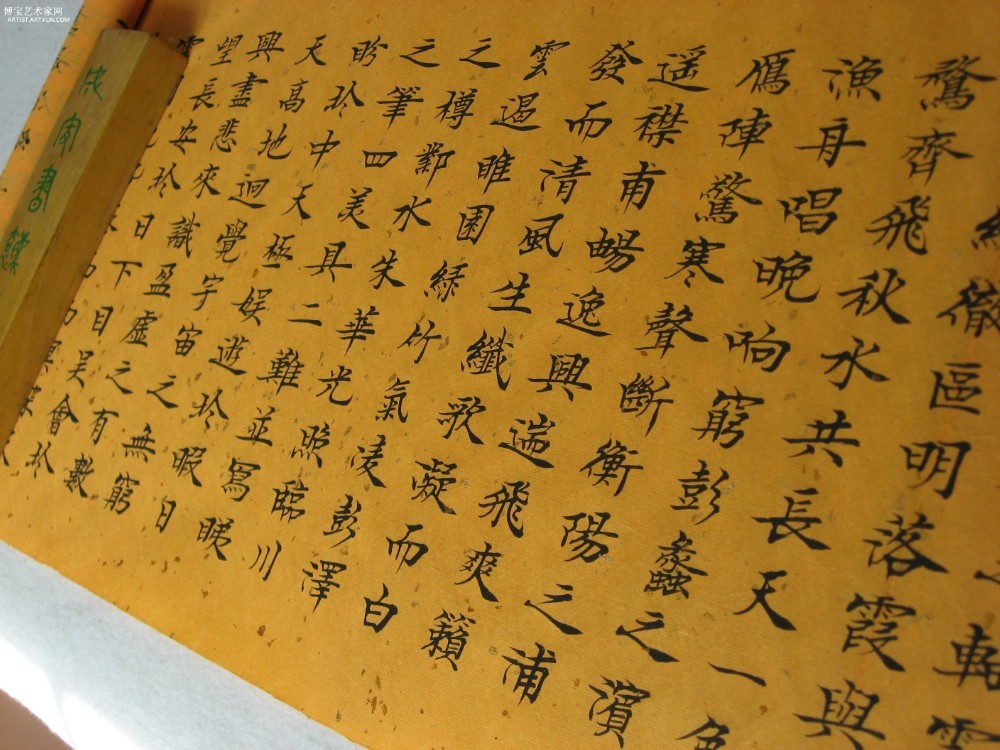 博宝艺术家网
ARTIST.ARTXUN.COM
徹區明落霞與
鶩齊飛秋水共長天一色
漁舟唱晚响窮彭蠡之濱
鴈陣驚寒聲斷衡陽之浦
遥襟甫暢逸興遄飛爽籟
發而清風生纖歌凝而白
雲遏睢園緑竹氣凌彭澤
之樽鄴水朱華光照臨川
之筆四美具二難並寫睇
盻於中天極娱遊於暇日
天高地迥覺宇宙之無窮
興盡悲來識盈虛之有數
望長安於日下目吴會於